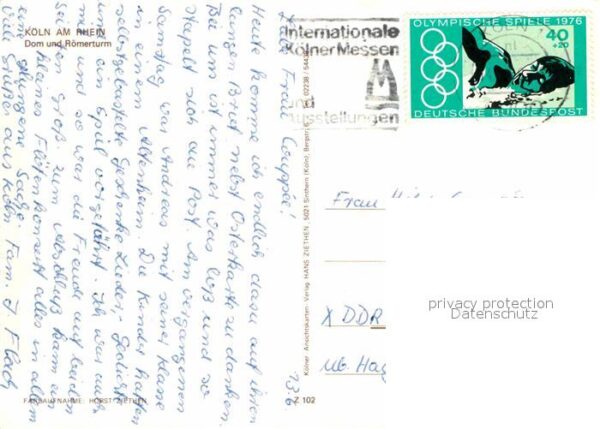 KÖLN AM RHEIN
Dom und Römerturm
Heute komme ich endlich dazu auf Ihren
langen Brief nebst Osterkarte zu danken.
Bei uns ist immer was los und so
stapelt sich die Post. Am vergangenen
Samstag war Andreas mit seiner Klasse
in einem Altenheim. Die Kinder hatten
selbstgebastelte Geschenke Lieder, Gedichte
ein Spiel vorgeführt. Ich war auch
mit und so war die Freude auf beiden
groß zum Abschluß kam ein
kleines Flötenkonzert alles in allem
gelungene Sache.
Viele Grüße aus Köln Fam. J. Flach
FARBAUFNAHME: HORST ZIETHEN
Kölner Ansichtskarten Verlag HANS ZIETHEN, 5021 Sinthern (Köln)
Z 102
Internationale
Kölner Messen
und
Ausstellungen
OLYMPISCHE SPIELE 1976
40
+20
DEUTSCHE BUNDESPOST
Frau
X DDR
136
privacy protection
Datenschutz